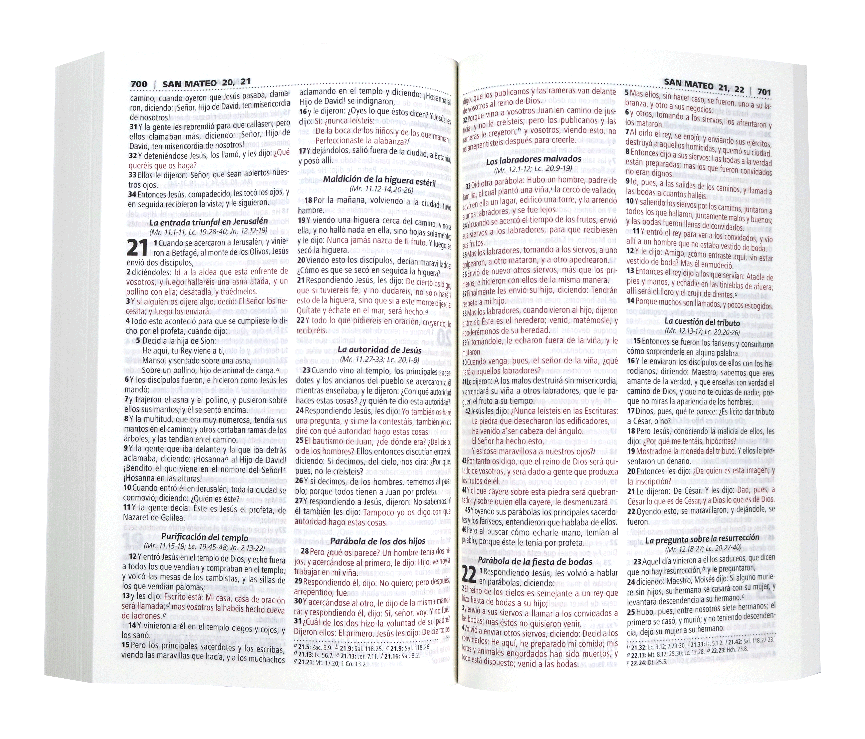 700 | SAN MATEO 20, 21
camino, cuando oyeron que Jesús pasaba, clama-
ron, diciendo: ¡Señor, Hijo de David, ten misericordia
de nosotros!
31 Y la gente les reprendió para que callasen; pero
ellos clamaban más, diciendo: ¡Señor, Hijo de
David, ten misericordia de nosotros!
32 Y deteniéndose Jesús, los llamó, y les dijo: ¿Qué
queréis que os haga?
33 Ellos le dijeron: Señor, que sean abiertos nues-
tros ojos.
34 Entonces Jesús, compadecido, les tocó los ojos, y
en seguida recibieron la vista; y le siguieron.
La entrada triunfal en Jerusalén
(Mr. 11.1-11; Lc. 19.28-40; Jn. 12.12-19)
21 1 Cuando se acercaron a Jerusalén, y vinie-
ron a Betfagé, al monte de los Olivos, Jesús
envió dos discípulos,
2 diciéndoles: Id a la aldea que está enfrente de
vosotros, y luego hallaréis una asna atada, y un
pollino con ella; desatadla, y traédmelos.
3 Y si alguien os dijere algo, decid: El Señor los ne-
cesita; y luego los enviará.
4 Todo esto aconteció para que se cumpliese lo di-
cho por el profeta, cuando dijo:
5 Decid a la hija de Sion:
He aquí, tu Rey viene a ti,
Manso, y sentado sobre una asna,
Sobre un pollino, hijo de animal de carga.
6 Y los discípulos fueron, e hicieron como Jesús les
mandó;
7 y trajeron el asna y el pollino, y pusieron sobre
ellos sus mantos; y él se sentó encima.
8 Y la multitud, que era muy numerosa, tendía sus
mantos en el camino; y otros cortaban ramas de los
árboles, y las tendían en el camino.
9 Y la gente que iba delante y la que iba detrás
aclamaba, diciendo: ¡Hosanna al Hijo de David!
¡Bendito el que viene en el nombre del Señor!
¡Hosanna en las alturas!
10 Cuando entró él en Jerusalén, toda la ciudad se
conmovió, diciendo: ¿Quién es éste?
11 Y la gente decía: Este es Jesús el profeta, de
Nazaret de Galilea.
Purificación del templo
(Mr. 11.15-19; Lc. 19.45-48; Jn. 2.13-22)
12 Y entró Jesús en el templo de Dios, y echó fuera
a todos los que vendían y compraban en el templo,
y volcó las mesas de los cambistas, y las sillas de
los que vendían palomas;
13 y les dijo: Escrito está: Mi casa, casa de oración
será llamada; mas vosotros la habéis hecho cueva
de ladrones.
14 Y vinieron a él en el templo ciegos y cojos, y
los sanó.
15 Pero los principales sacerdotes y los escribas,
viendo las maravillas que hacía, y a los muchachos
aclamando en el templo y diciendo: ¡Hosanna al
Hijo de David! se indignaron,
16 y le dijeron: ¿Oyes lo que éstos dicen? Y Jesús
dijo: Sí; ¿nunca leísteis:
De la boca de los niños y de los que maman
Perfeccionaste la alabanza?
17 Y dejándolos, salió fuera de la ciudad, a Betania,
y posó allí.
Maldición de la higuera estéril
(Mr. 11.12-14,20-26)
18 Por la mañana, volviendo a la ciudad, tuvo
hambre.
19 Y viendo una higuera cerca del camino, vino a
ella, y no halló nada en ella, sino hojas solamente;
y le dijo: Nunca jamás nazca de ti fruto. Y luego se
secó la higuera.
20 Viendo esto los discípulos, decían maravillados:
¿Cómo es que se secó en seguida la higuera?
21 Respondiendo Jesús, les dijo: De cierto os digo,
que si tuviereis fe, y no dudareis, no sólo haréis
esto de la higuera, sino que si a este monte dijereis:
Quítate y échate en el mar, será hecho.
22 Y todo lo que pidiereis en oración, creyendo, lo
recibiréis.
La autoridad de Jesús
(Mr. 11.27-33; Lc. 20.1-8)
23 Cuando vino al templo, los principales sacer-
dotes y los ancianos del pueblo se acercaron a él
mientras enseñaba, y le dijeron: ¿Con qué autoridad
haces estas cosas? ¿y quién te dio esta autoridad?
24 Respondiendo Jesús, les dijo: Yo también os haré
una pregunta, y si me la contestáis, también yo os
diré con qué autoridad hago estas cosas.
25 El bautismo de Juan, ¿de dónde era? ¿Del cielo,
o de los hombres? Ellos entonces discutían entre sí,
diciendo: Si decimos, del cielo, nos dirá: ¿Por qué,
pues, no le creísteis?
26 Y si decimos, de los hombres, tememos al pue-
blo; porque todos tienen a Juan por profeta.
27 Y respondiendo a Jesús, dijeron: No sabemos. Y
él también les dijo: Tampoco yo os digo con qué
autoridad hago estas cosas.
Parábola de los dos hijos
28 Pero ¿qué os parece? Un hombre tenía dos hi-
jos, y acercándose al primero, le dijo: Hijo, ve hoy a
trabajar en mi viña.
29 Respondiendo él, dijo: No quiero; pero después,
arrepentido, fue.
30 Y acercándose al otro, le dijo de la misma mane-
ra; y respondiendo él, dijo: Sí, señor, voy. Y no fue.
31 ¿Cuál de los dos hizo la voluntad de su padre?
Dijeron ellos: El primero. Jesús les dijo: De cierto os
SAN MATEO 21, 22 | 701
digo, que los publicanos y las rameras van delante
de vosotros al reino de Dios.
32 Porque vino a vosotros Juan en camino de jus-
ticia, y no le creísteis; pero los publicanos y las
rameras le creyeron; y vosotros, viendo esto, no
os arrepentisteis después para creerle.
Los labradores malvados
(Mr. 12.1-12; Lc. 20.9-19)
33 Oíd otra parábola: Hubo un hombre, padre de
familia, el cual plantó una viña, la cercó de vallado,
cavó en ella un lagar, edificó una torre, y la arrendó
a unos labradores, y se fue lejos.
34 Y cuando se acercó el tiempo de los frutos, envió
sus siervos a los labradores, para que recibiesen
sus frutos.
35 Mas los labradores, tomando a los siervos, a uno
golpearon, a otro mataron, y a otro apedrearon.
36 Envió de nuevo otros siervos, más que los pri-
meros; e hicieron con ellos de la misma manera.
37 Finalmente les envió su hijo, diciendo: Tendrán
respeto a mi hijo.
38 Mas los labradores, cuando vieron al hijo, dijeron
entre sí: Este es el heredero; venid, matémosle, y
apoderémonos de su heredad.
39 Y tomándole, le echaron fuera de la viña, y le
mataron.
40 Cuando venga, pues, el señor de la viña, ¿qué
hará a aquellos labradores?
41 Le dijeron: A los malos destruirá sin misericordia,
y arrendará su viña a otros labradores, que le pa-
guen el fruto a su tiempo.
42 Jesús les dijo: ¿Nunca leísteis en las Escrituras:
La piedra que desecharon los edificadores,
Ha venido a ser cabeza del ángulo.
El Señor ha hecho esto,
Y es cosa maravillosa a nuestros ojos?
43 Por tanto os digo, que el reino de Dios será qui-
tado de vosotros, y será dado a gente que produzca
los frutos de él.
44 Y el que cayere sobre esta piedra será quebran-
tado; y sobre quien ella cayere, le desmenuzará.
45 Y oyendo sus parábolas los principales sacerdo-
tes y los fariseos, entendieron que hablaba de ellos.
46 Pero al buscar cómo echarle mano, temían al
pueblo, porque éste le tenía por profeta.
Parábola de la fiesta de bodas
22 1 Respondiendo Jesús, les volvió a hablar
en parábolas, diciendo:
2 El reino de los cielos es semejante a un rey que
hizo fiesta de bodas a su hijo;
3 y envió a sus siervos a llamar a los convidados a
las bodas; mas éstos no quisieron venir.
4 Volvió a enviar otros siervos, diciendo: Decid a los
convidados: He aquí, he preparado mi comida; mis
toros y animales engordados han sido muertos, y
todo está dispuesto; venid a las bodas.
5 Mas ellos, sin hacer caso, se fueron, uno a su la-
branza, y otro a sus negocios;
6 y otros, tomando a los siervos, los afrentaron y
los mataron.
7 Al oírlo el rey, se enojó; y enviando sus ejércitos,
destruyó a aquellos homicidas, y quemó su ciudad.
8 Entonces dijo a sus siervos: Las bodas a la verdad
están preparadas; mas los que fueron convidados
no eran dignos.
9 Id, pues, a las salidas de los caminos, y llamad a
las bodas a cuantos halléis.
10 Y saliendo los siervos por los caminos, juntaron a
todos los que hallaron, juntamente malos y buenos;
y las bodas fueron llenas de convidados.
11 Y entró el rey para ver a los convidados, y vio
allí a un hombre que no estaba vestido de boda.
12 Y le dijo: Amigo, ¿cómo entraste aquí, sin estar
vestido de boda? Mas él enmudeció.
13 Entonces el rey dijo a los que servían: Atadle de
pies y manos, y echadle en las tinieblas de afuera;
allí será el lloro y el crujir de dientes.
14 Porque muchos son llamados, y pocos escogidos.
La cuestión del tributo
(Mr. 12.13-17; Lc. 20.20-26)
15 Entonces se fueron los fariseos y consultaron
cómo sorprenderle en alguna palabra.
16 Y le enviaron los discípulos de ellos con los he-
rodianos, diciendo: Maestro, sabemos que eres
amante de la verdad, y que enseñas con verdad el
camino de Dios, y que no te cuidas de nadie, por-
que no miras la apariencia de los hombres.
17 Dinos, pues, qué te parece: ¿Es lícito dar tributo
a César, o no?
18 Pero Jesús, conociendo la malicia de ellos, les
dijo: ¿Por qué me tentáis, hipócritas?
19 Mostradme la moneda del tributo. Y ellos le pre-
sentaron un denario.
20 Entonces les dijo: ¿De quién es esta imagen, y
la inscripción?
21 Le dijeron: De César. Y les dijo: Dad, pues, a
César lo que es de César, y a Dios lo que es de Dios.
22 Oyendo esto, se maravillaron, y dejándole, se
fueron.
La pregunta sobre la resurrección
(Mr. 12.18-27; Lc. 20.27-40)
23 Aquel día vinieron a él los saduceos, que dicen
que no hay resurrección, y le preguntaron,
24 diciendo: Maestro, Moisés dijo: Si alguno murie-
re sin hijos, su hermano se casará con su mujer, y
levantará descendencia a su hermano.
25 Hubo, pues, entre nosotros siete hermanos; el
primero se casó, y murió; y no teniendo descenden-
cia, dejó su mujer a su hermano.